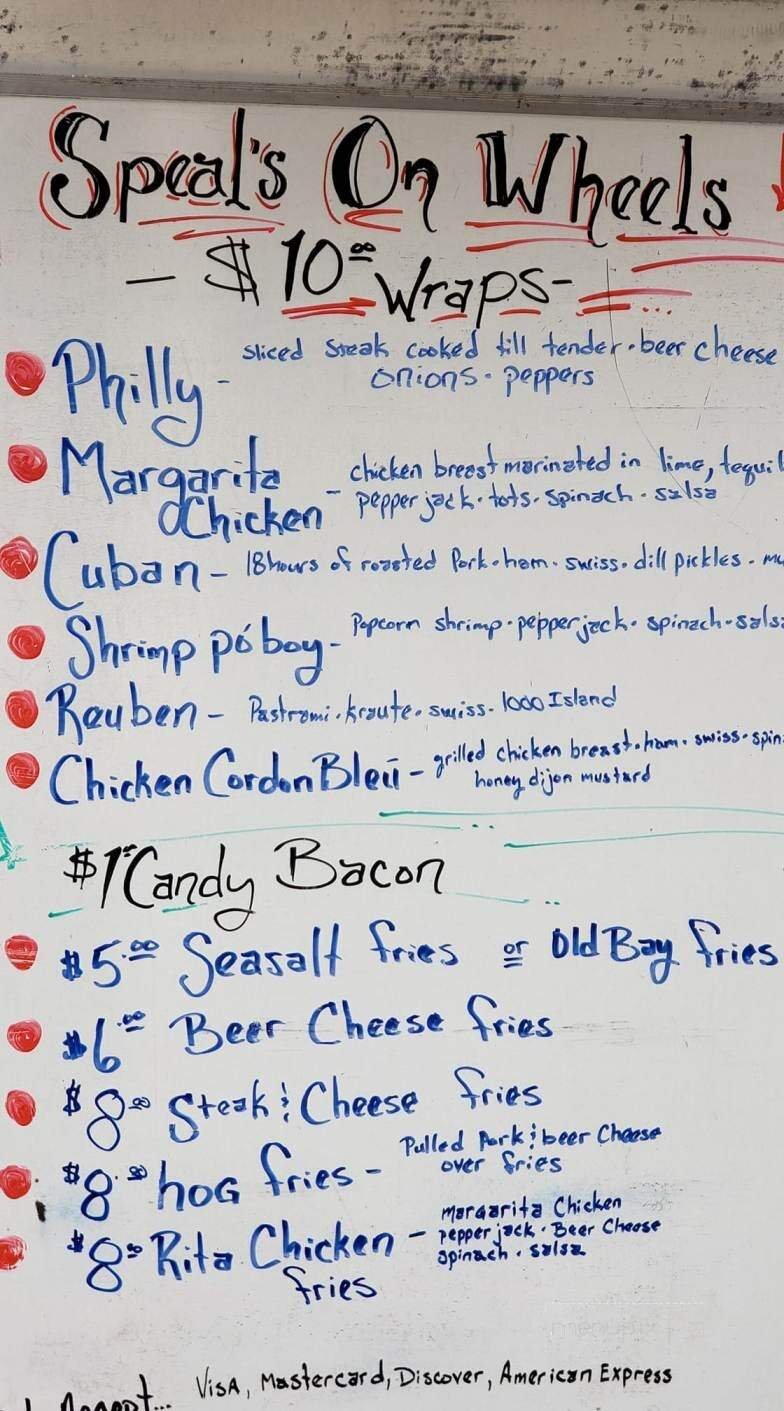 Speal's On Wheels
- $10.00 Wraps-
Philly - sliced steak cooked till tender · beer cheese
onions · peppers
Margarita Chicken - chicken breast marinated in lime,
pepper jack · tots · spinach · salsa
Cuban - 18 hours of roasted Pork · ham · swiss · dill pickles ·
Shrimp pó boy - Popcorn shrimp · pepper jack · spinach · salsa
Reuben - Pastrami · kraute · swiss · 1000 Island
Chicken Cordon Bleū - grilled chicken breast · ham · swiss ·
honey dijon mustard
$1 Candy Bacon
$5.00 Seasalt fries or Old Bay fries
$6.00 Beer Cheese fries
$8.00 Steak & Cheese fries
$8.00 hoG fries - Pulled Pork & beer Cheese
over fries
$8.00 Rita Chicken fries - margarita Chicken
pepper jack · Beer Cheese
spinach · salsa
Visa, Mastercard, Discover, American Express